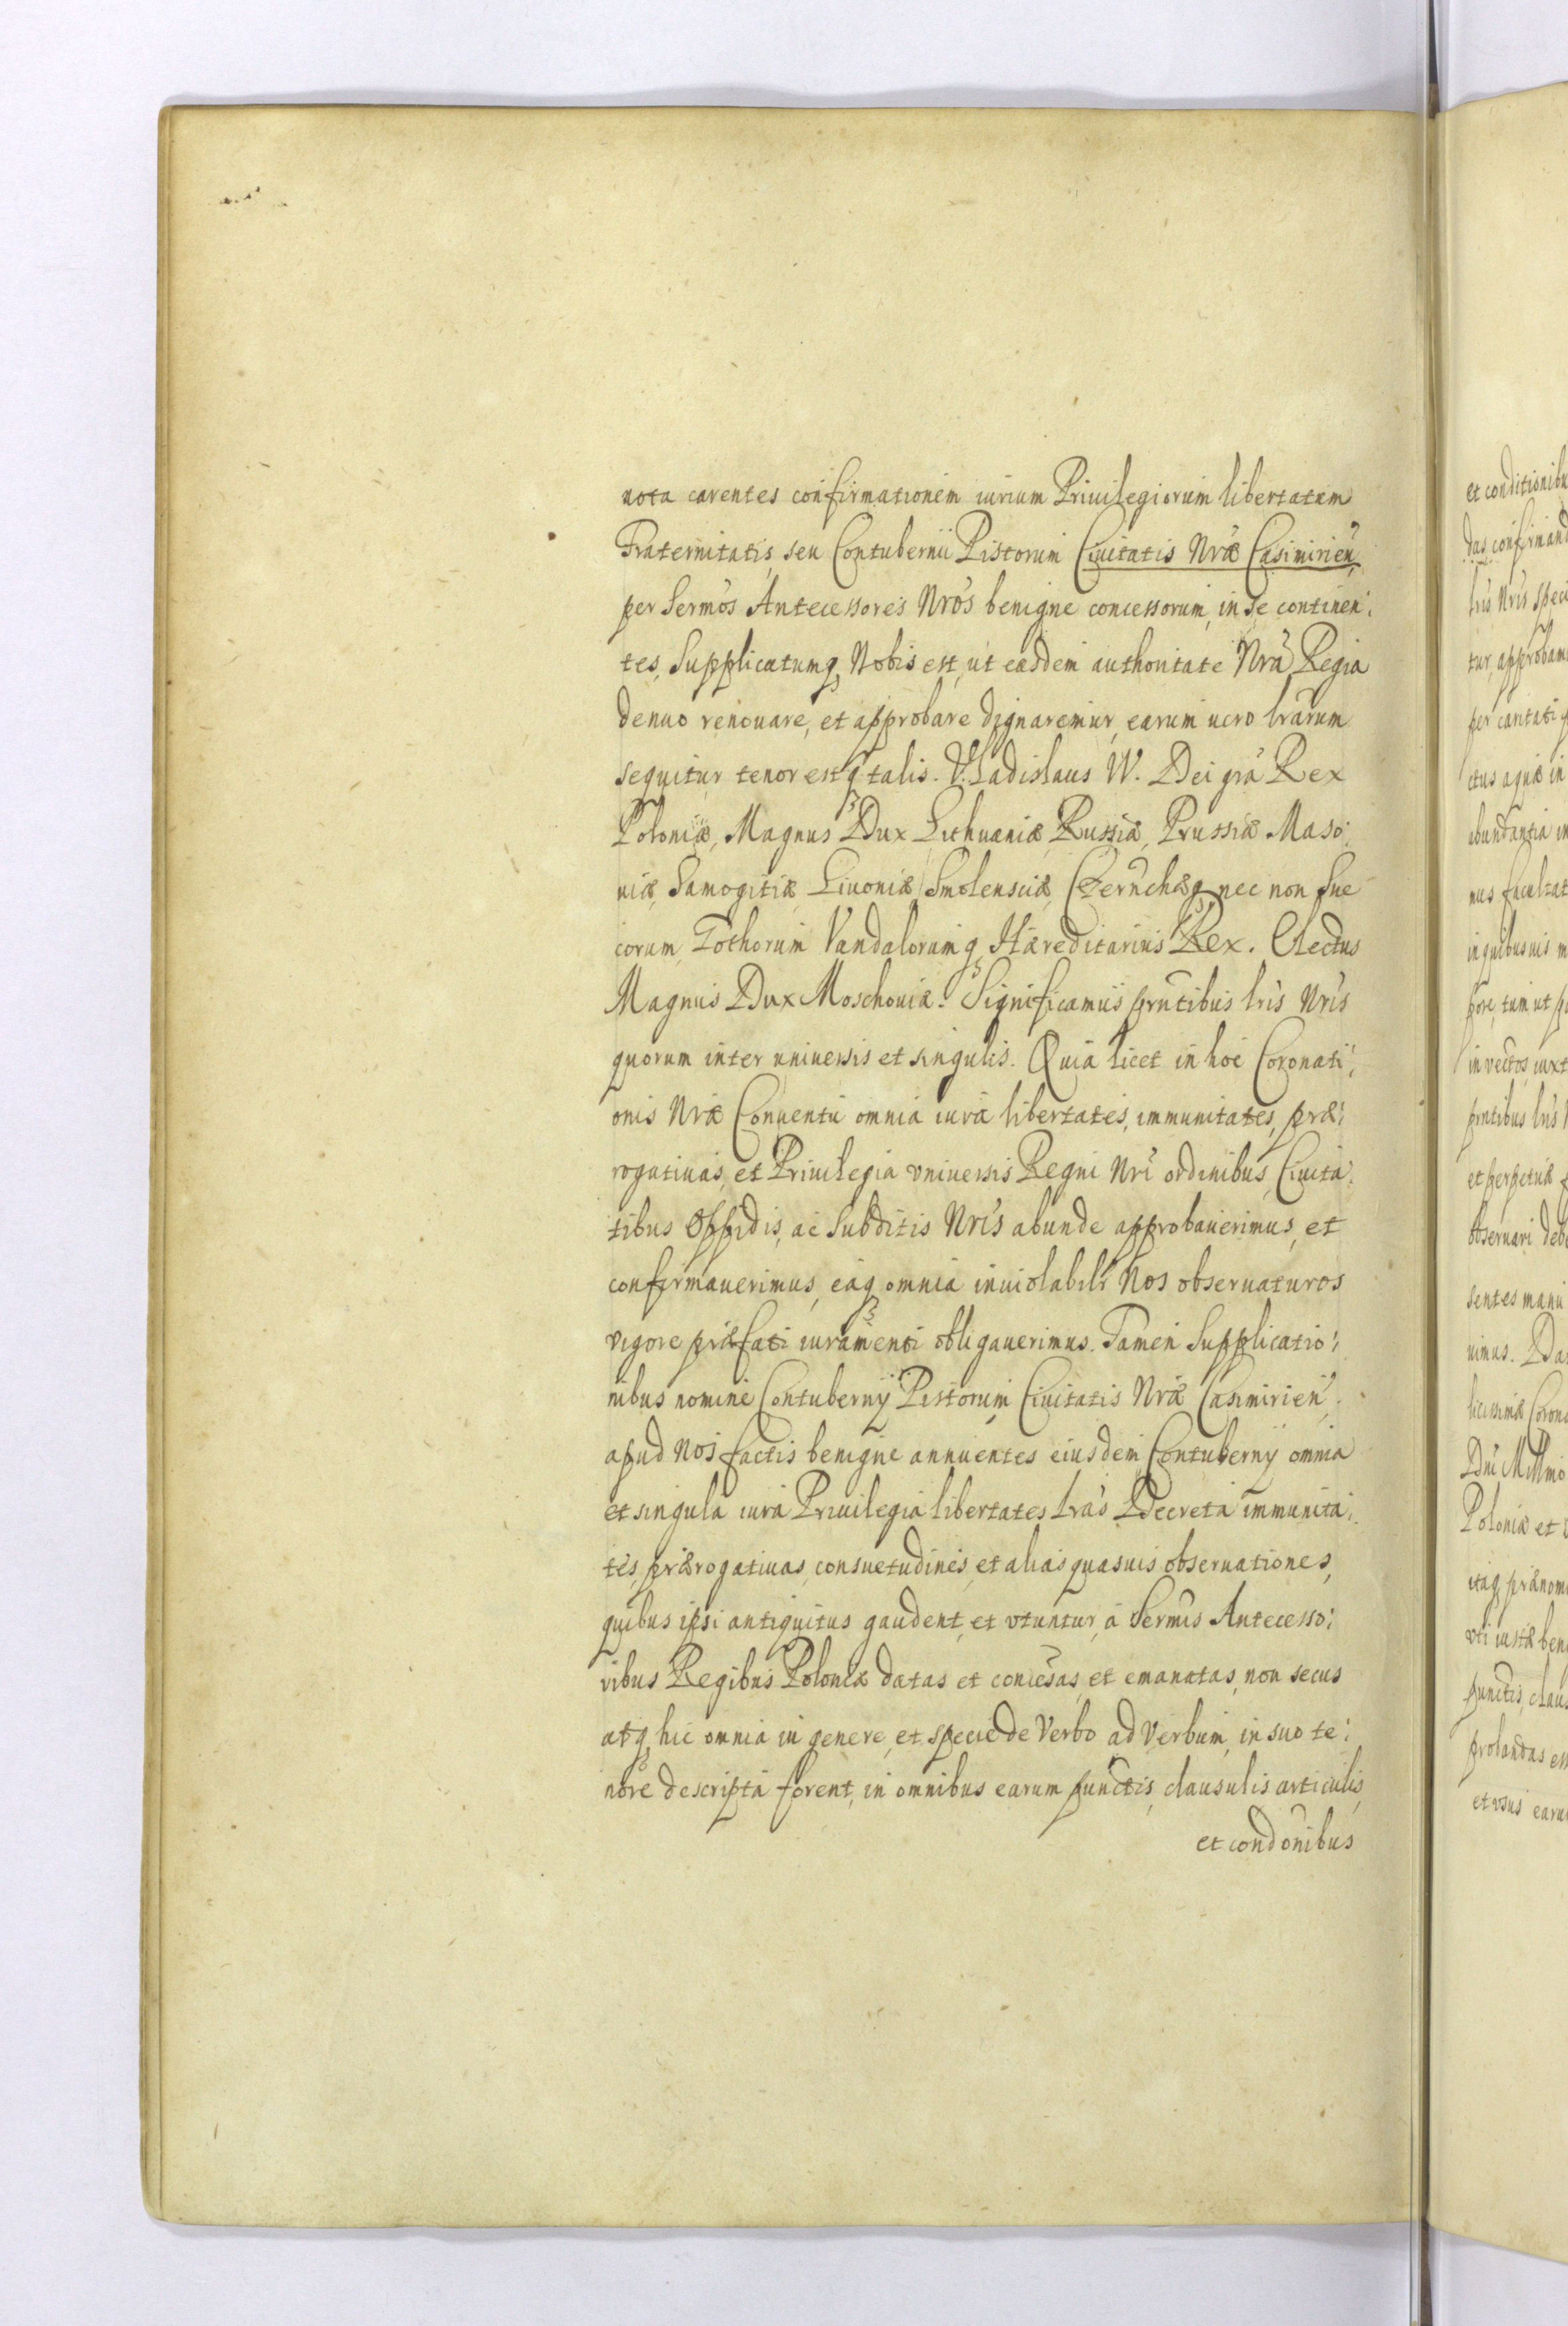 nota carentes confirmationem iurium Priuilegiorum libertatum
Fraternitatis, seu Contubernii Pistorum Ciuitatis Nræ Casimirien,
per Sermos Antecessores Nros benigne concessorum, in se continen:
tes, Supplicatumq Nobis est, ut easdem authoritate Nra Regia
denuo renouare, et approbare dignaremur, earum uero lrarum
sequitur tenor estq talis. Vladislaus IV. Dei gra Rex
Poloniæ, Magnus Dux Lithuaniæ Russiæ, Prussiæ Maso:
uiæ, Samogitiæ Liuoniæ Smolensciæ, Czernchæq, nec non Sue
corum, Gothorum Vandalorumq Hæreditarius Rex. Electus
Magnus Dux Moschouiæ. Significamus prntibus lris Nris
quorum inter uniuersis et singulis. Quia licet in hoc Coronati:
onis Nræ Conuentu omnia iura libertates, immunitates, præ:
rogatiuas, et Priuilegia vniuersis Regni Nri ordinibus, Ciuita:
tibus Oppidis, ac Subditis Nris abunde approbauerimus, et
confirmauerimus, eaq omnia inuiolabilr Nos obseruaturos
vigore præfati iuramenti obligauerimus. Tamen Supplicatio:
nibus nomine Contubernij Pistorum Ciuitatis Nræ Casimirien,
apud Nos factis benigne annuentes eiusdem Contubernij omnia
et singula iura Priuilegia libertates lras Decreta immunita:
tes, prærogatiuas, consuetudines, et alias quasuis obseruationes,
quibus ipsi antiquitus gaudent, et vtuntur, a Sermis Antecesso:
ribus Regibus Poloniæ datas et concesas, et emanatas, non secus
atq hic omnia in genere, et specie de Verbo ad Verbum, in suo te:
nore descripta forent, in omnibus earum punctis, clausulis articulis,
et condonibus
et conditionibu
das confirmand
lris Nris speci
tur, approbam
per caritati
ctus aquæ in
abundantia in
nus facultat
in quibusuis m
pore, tum ut p
in vectos, iuxt
prntibus lris
et perpetuæ
obseruari deb
sentes manu
uimus. Da
licissimæ Corona
Dni Millmo
Poloniæ et
itaq prænom
vti iustæ ben
punctis, claus
probandas ess
et vsus earu